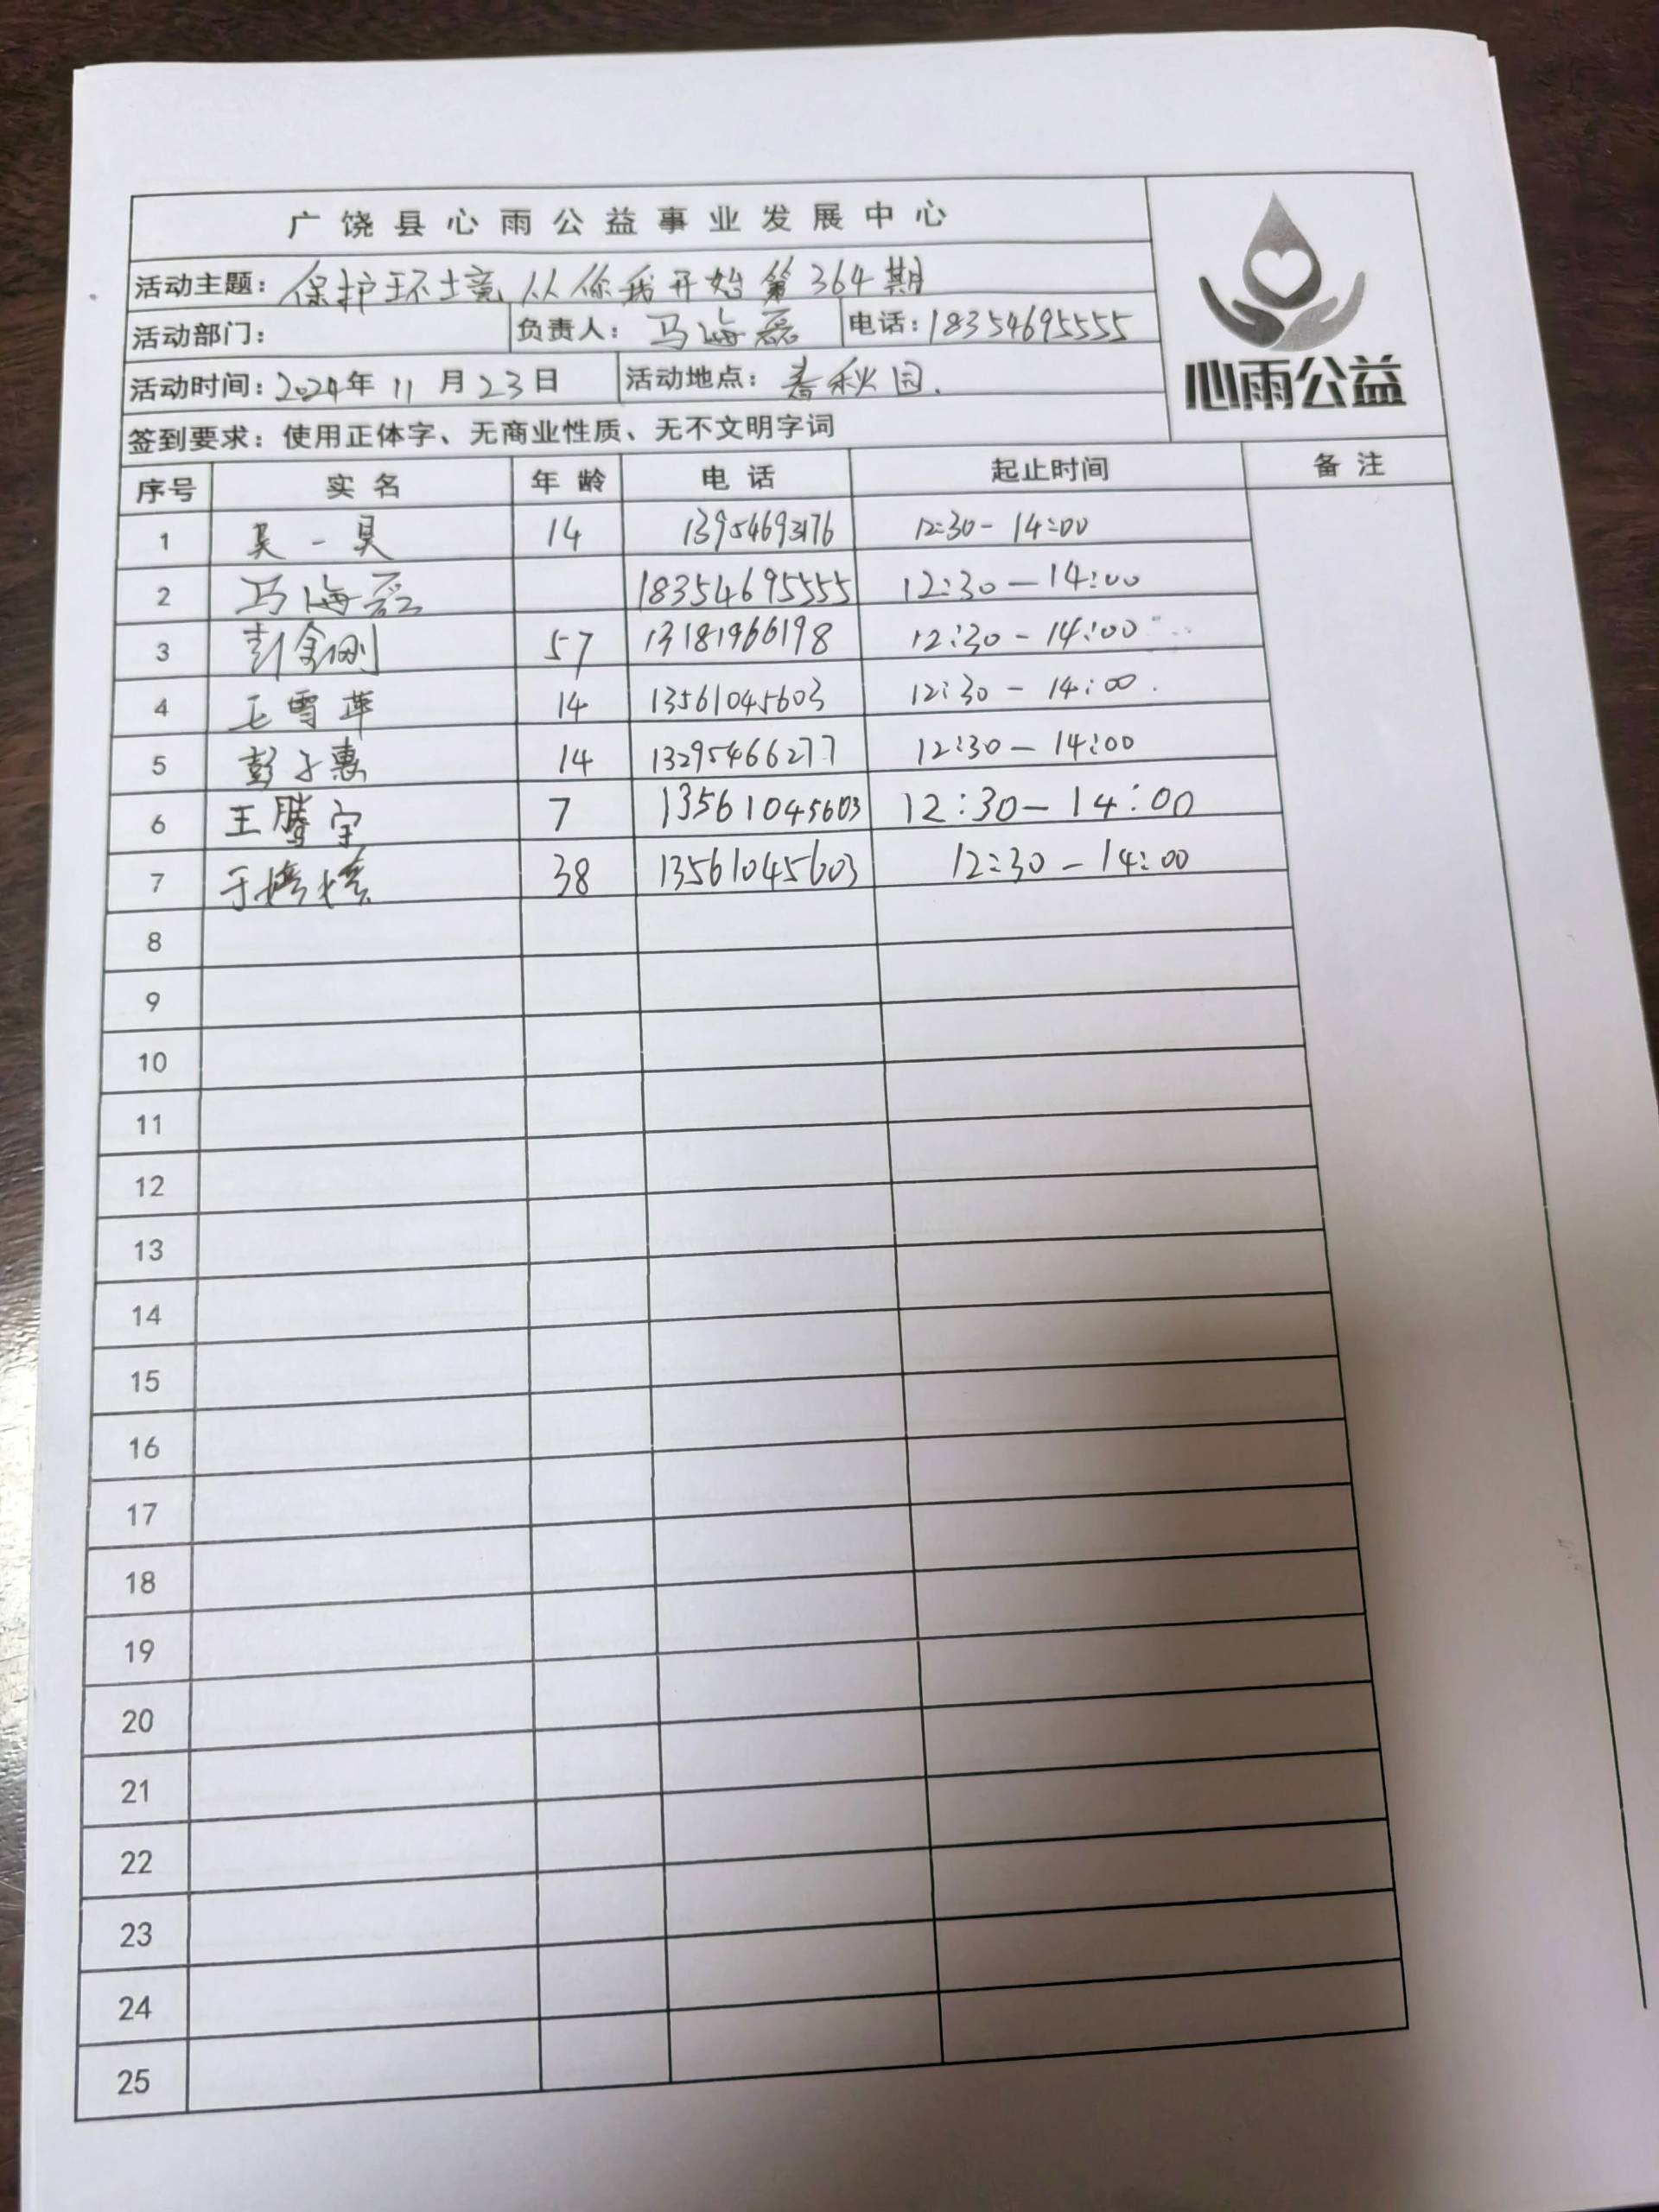 广饶县心雨公益事业发展中心
活动主题：保护环境从你我开始第364期
活动部门： 负责人：马海磊 电话：18354695555
活动时间：2024年11月23日 活动地点：春秋园.
心雨公益
签到要求：使用正体字、无商业性质、无不文明字词
序号 实名 年龄 电话 起止时间 备注
1 吴一昊 14 12:30-14:00
2 马海磊 18354695555 12:30-14:00
3 彭金刚 57 13181966198 12:30-14:00
4 王雪萍 14 13561045603 12:30-14:00.
5 彭子惠 14 13295466277 12:30-14:00
6 王腾宇 7 13561045603 12:30-14:00
7 于 38 13561045603 12:30-14:00
8
9
10
11
12
13
14
15
16
17
18
19
20
21
22
23
24
25